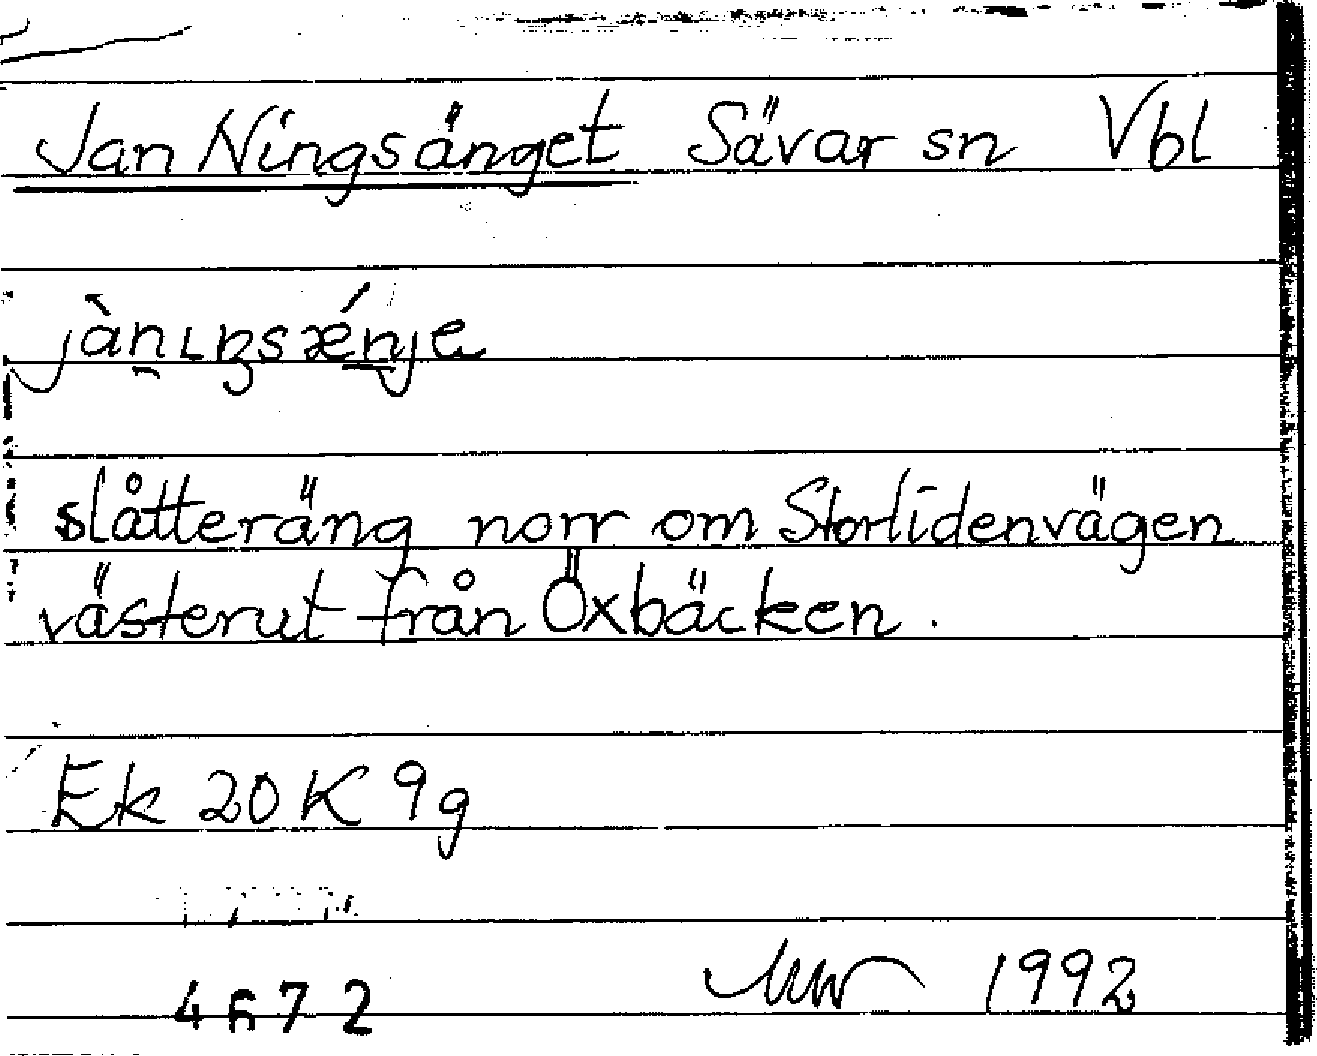 Jan Ningsänget Sävar sn Vbl
slåtteräng norr om Storlidenvägen
västerut från Öxbäcken.
Ek 20 K 9g
4672 1992